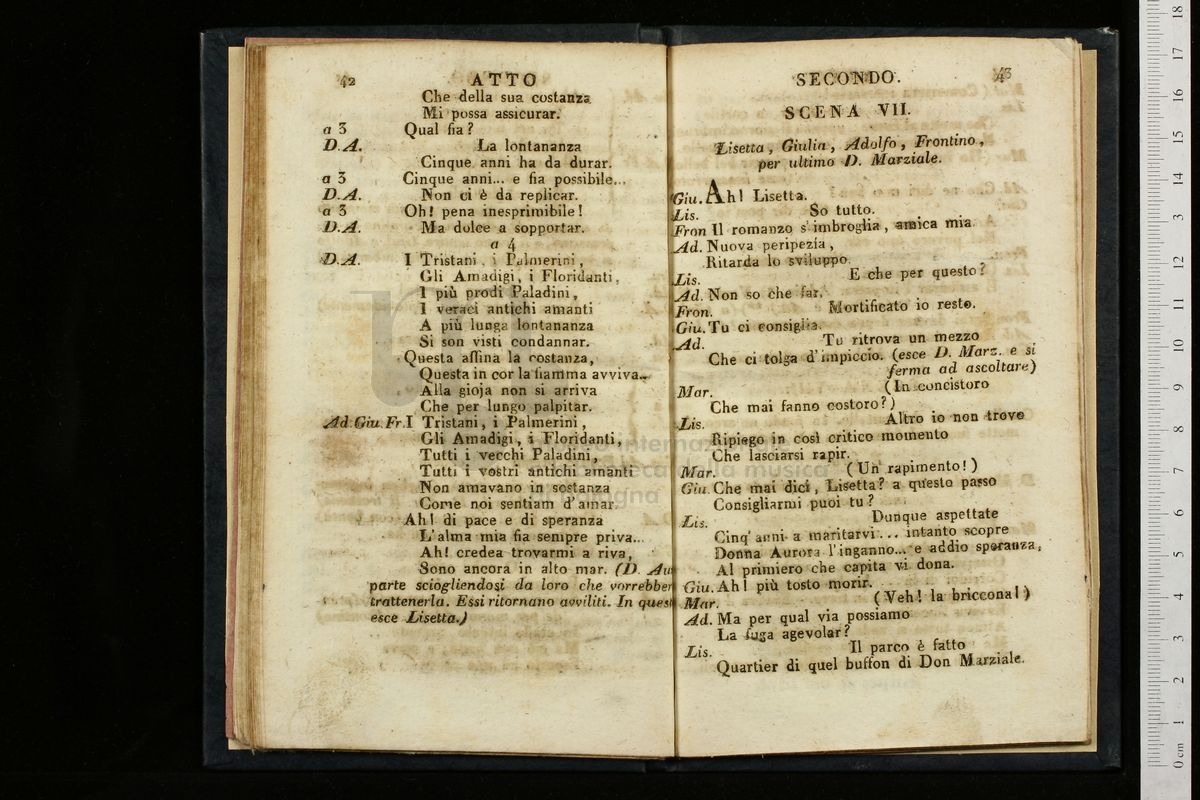 42 ATTO
Che della sua costanza
Mi possa assicurar.
a 3 Qual fia?
D.A. La lontananza
Cinque anni ha da durar.
a 3 Cinque anni... e fia possibile...
D.A. Non ci è da replicar.
a 3 Oh! pena inesprimibile!
D.A. Ma dolce a sopportar.
a 4
D.A. I Tristani, i Palmerini,
Gli Amadigi, i Floridanti,
I più prodi Paladini,
I veraci antichi amanti
A più lunga lontananza
Si son visti condannar.
Questa affina la costanza,
Questa in cor la fiamma avviva..
Alla gioja non si arriva
Che per lungo palpitar.
Ad. Giu. Fr. I Tristani, i Palmerini,
Gli Amadigi, i Floridanti,
Tutti i vecchi Paladini,
Tutti i vostri antichi amanti
Non amavano in sostanza
Come noi sentiam d'amar.
Ah! di pace e di speranza
L'alma mia fia sempre priva...
Ah! credea trovarmi a riva,
Sono ancora in alto mar. (D. Au
parte sciogliendosi da loro che vorrebber
trattenerla. Essi ritornano avviliti. In quest
esce Lisetta.)
SECONDO. 43
SCENA VII.
Lisetta, Giulia, Adolfo, Frontino,
per ultimo D. Marziale.
Giu. Ah! Lisetta.
Lis. So tutto.
Fron Il romanzo s'imbroglia, amica mia.
Ad. Nuova peripezia,
Ritarda lo sviluppo.
Lis. E che per questo?
Ad. Non so che far.
Fron. Mortificato io resto.
Giu. Tu ci consiglia.
Ad. Tu ritrova un mezzo
Che ci tolga d'impiccio. (esce D. Marz. e si
ferma ad ascoltare)
Mar. (In concistoro
Che mai fanno costoro?)
Lis. Altro io non trovo
Ripiego in così critico momento
Che lasciarsi rapir.
Mar. (Un rapimento!)
Giu. Che mai dici, Lisetta? a questo passo
Consigliarmi puoi tu?
Lis. Dunque aspettate
Cinq' anni a maritarvi... intanto scopre
Donna Aurora l'inganno... e addio speranza,
Al primiero che capita vi dona.
Giu. Ah! più tosto morir.
Mar. (Veh! la briccona!)
Ad. Ma per qual via possiamo
La fuga agevolar?
Lis. Il parco è fatto
Quartier di quel buffon di Don Marziale.